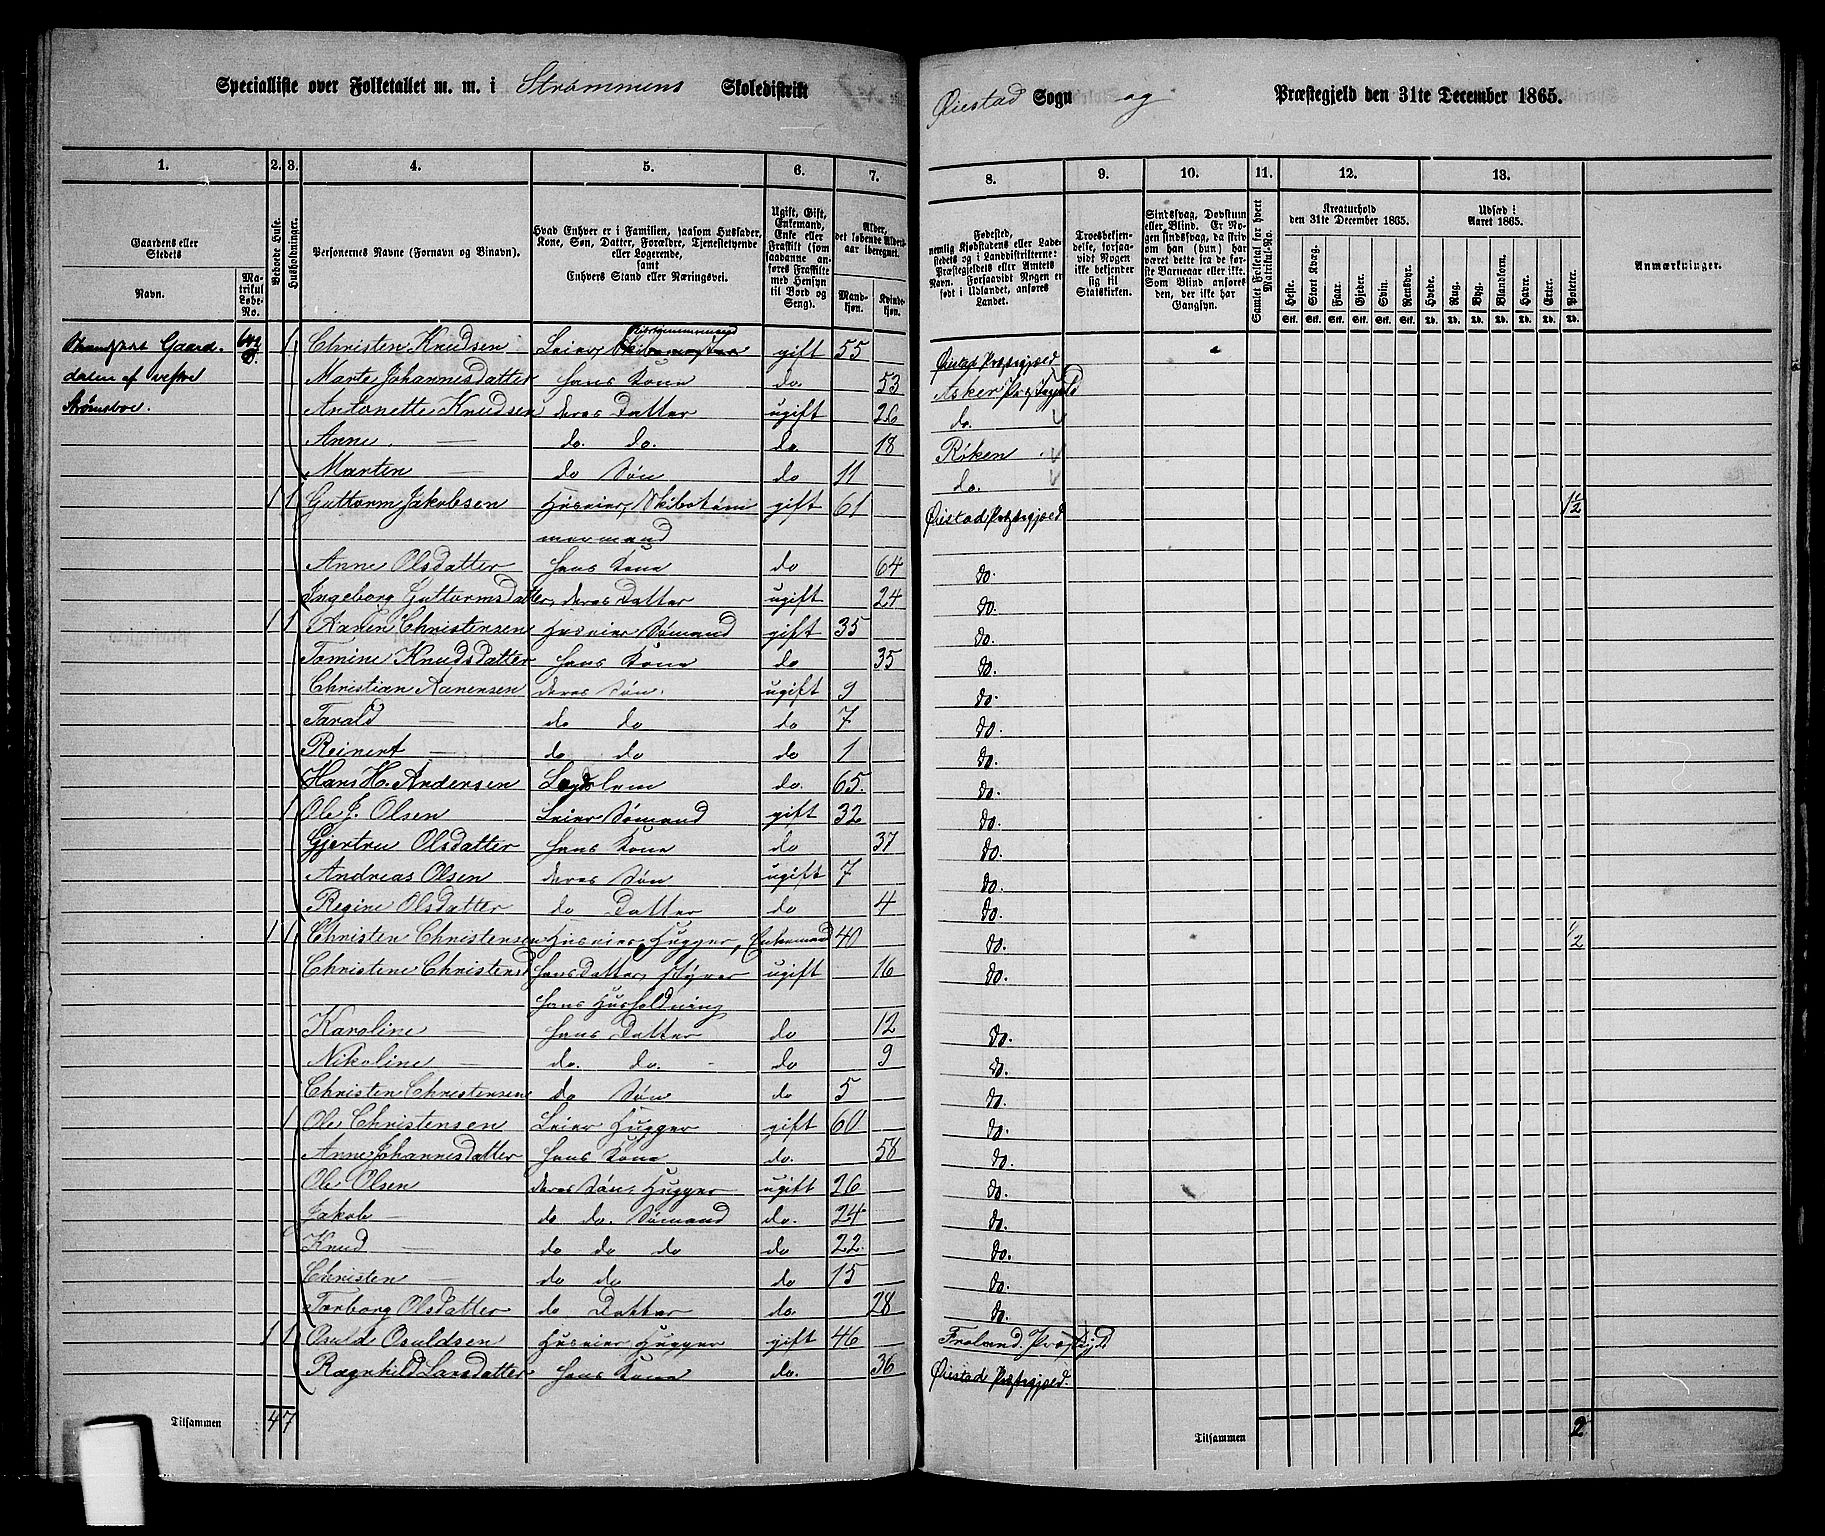 Specialliste over Folketallet m. m. i Strømmens Skoledistrikt
Øiestad Sogn og Præstegjeld den 31te December 1865.
1. 2. 3. 4. 5. 6. 7. 8. 9. 10. 11. 12. 13.
Gaardens eller Stedets
Navn.
Matrikul Løbe-No.
Beboede Huse.
Husholdninger.
Personernes Navne (Fornavn og Binavn).
Hvad Enhver er i Familien, saasom Husfader, Kone, Søn, Datter, Forældre, Tjenestetyende eller Logerende, samt Enhvers Stand eller Næringsvei.
Ugift, Gift, Enkemand, Enke eller Fraskilt (som saadanne anføres Fraskilte med Hensyn til Bord og Seng).
Alder, det løbende Alders-aar iberegnet.
Mandkøn. Kvindekøn.
Fødested, nemlig Kjøbstadens eller Ladestedets og i Landdistrikterne: Præstegjeldets eller Amtets Navn. Forsaavidt Nogen er født i Udlandet, anføres Landet.
Troesbekjendelse, forsaavidt Nogen ikke bekjender sig til Statskirken.
Sindssvag, Døvstum eller Blind. Er Nogen sindssvag, da skriv om han (hun) har været dette fra de første Barneaar eller ikke. Som Blind anføres den, der ikke har Gangsyn.
Samlet Folketal for hvert Matrikul-No.
Kreaturhold den 31te December 1865.
Heste. Stort Kvæg. Faar. Gjeder. Svin. Rensdyr.
Udsæd i Aaret 1865.
Hvede. Rug. Byg. Blandkorn. Havre. Erter. Poteter.
Anmærkninger.
Gaard- 1 Christen Knudsen Leier, gift 55 Øiestad Præstegjeld
dalen af vestre Marte Johannesdatter hans Kone do 53 Asker Præstegjeld
Strømsboe. Antonette Knudsen deres Datter ugift 26 do.
Anne — do. do. do 18 Røken
Marten — do Søn do 11 do.
1 1 Guttorm Jakobsen Huseier, Skibstømmermand gift 61 Øiestad Præstegjeld 1½
Anne Olsdatter hans Kone do 64 do.
Ingeborg Guttormsdatter, deres Datter ugift 24 do.
1 1 Aanen Christensen Huseier Sømand gift 35 do.
Tomine Knudsdatter hans Kone do 35 do.
Christian Aanensen deres Søn. ugift 9 do.
Tarald — do do do 7 do.
Reinert — do do do 1 do.
Hans H. Andersen Lægdslem do. 65. do.
1 Ole J. Olsen Leier Sømand gift 32 do.
Gjertru Olsdatter hans Kone do 37 do.
Andreas Olsen deres Søn ugift 7 do.
Regine Olsdatter do Datter do 4 do.
1 1 Christen Christensen Huseier, Hugger, Enkemand 40 do. ½
Christene Christensd hans Datter, styrer ugift 16 do.
hans Husholdning
Karoline — hans Datter do 12 do.
Nikoline — do. do. do 9 do.
Christen Christensen do Søn do 5 do.
1 Ole Christensen Leier Hugger gift 60 do.
Anne Johannesdatter hans Kone do. 58 do.
Ole Olsen deres Søn, Hugger ugift 26 do.
Jakob — do do. Sømand do. 24 do.
Knud — do do do do 22 do.
Christen — do do do 15 do.
Torborg Olsdatter do Datter do. 28 do.
1 1 Osuld Osuldsen Huseier Hugger gift 46 Froland Præstgjd
Ragnhild Larsdatter hans Kone do. 36 Øiestad Præstegjeld.
Tilsammen 4 7
Tilsammen 2